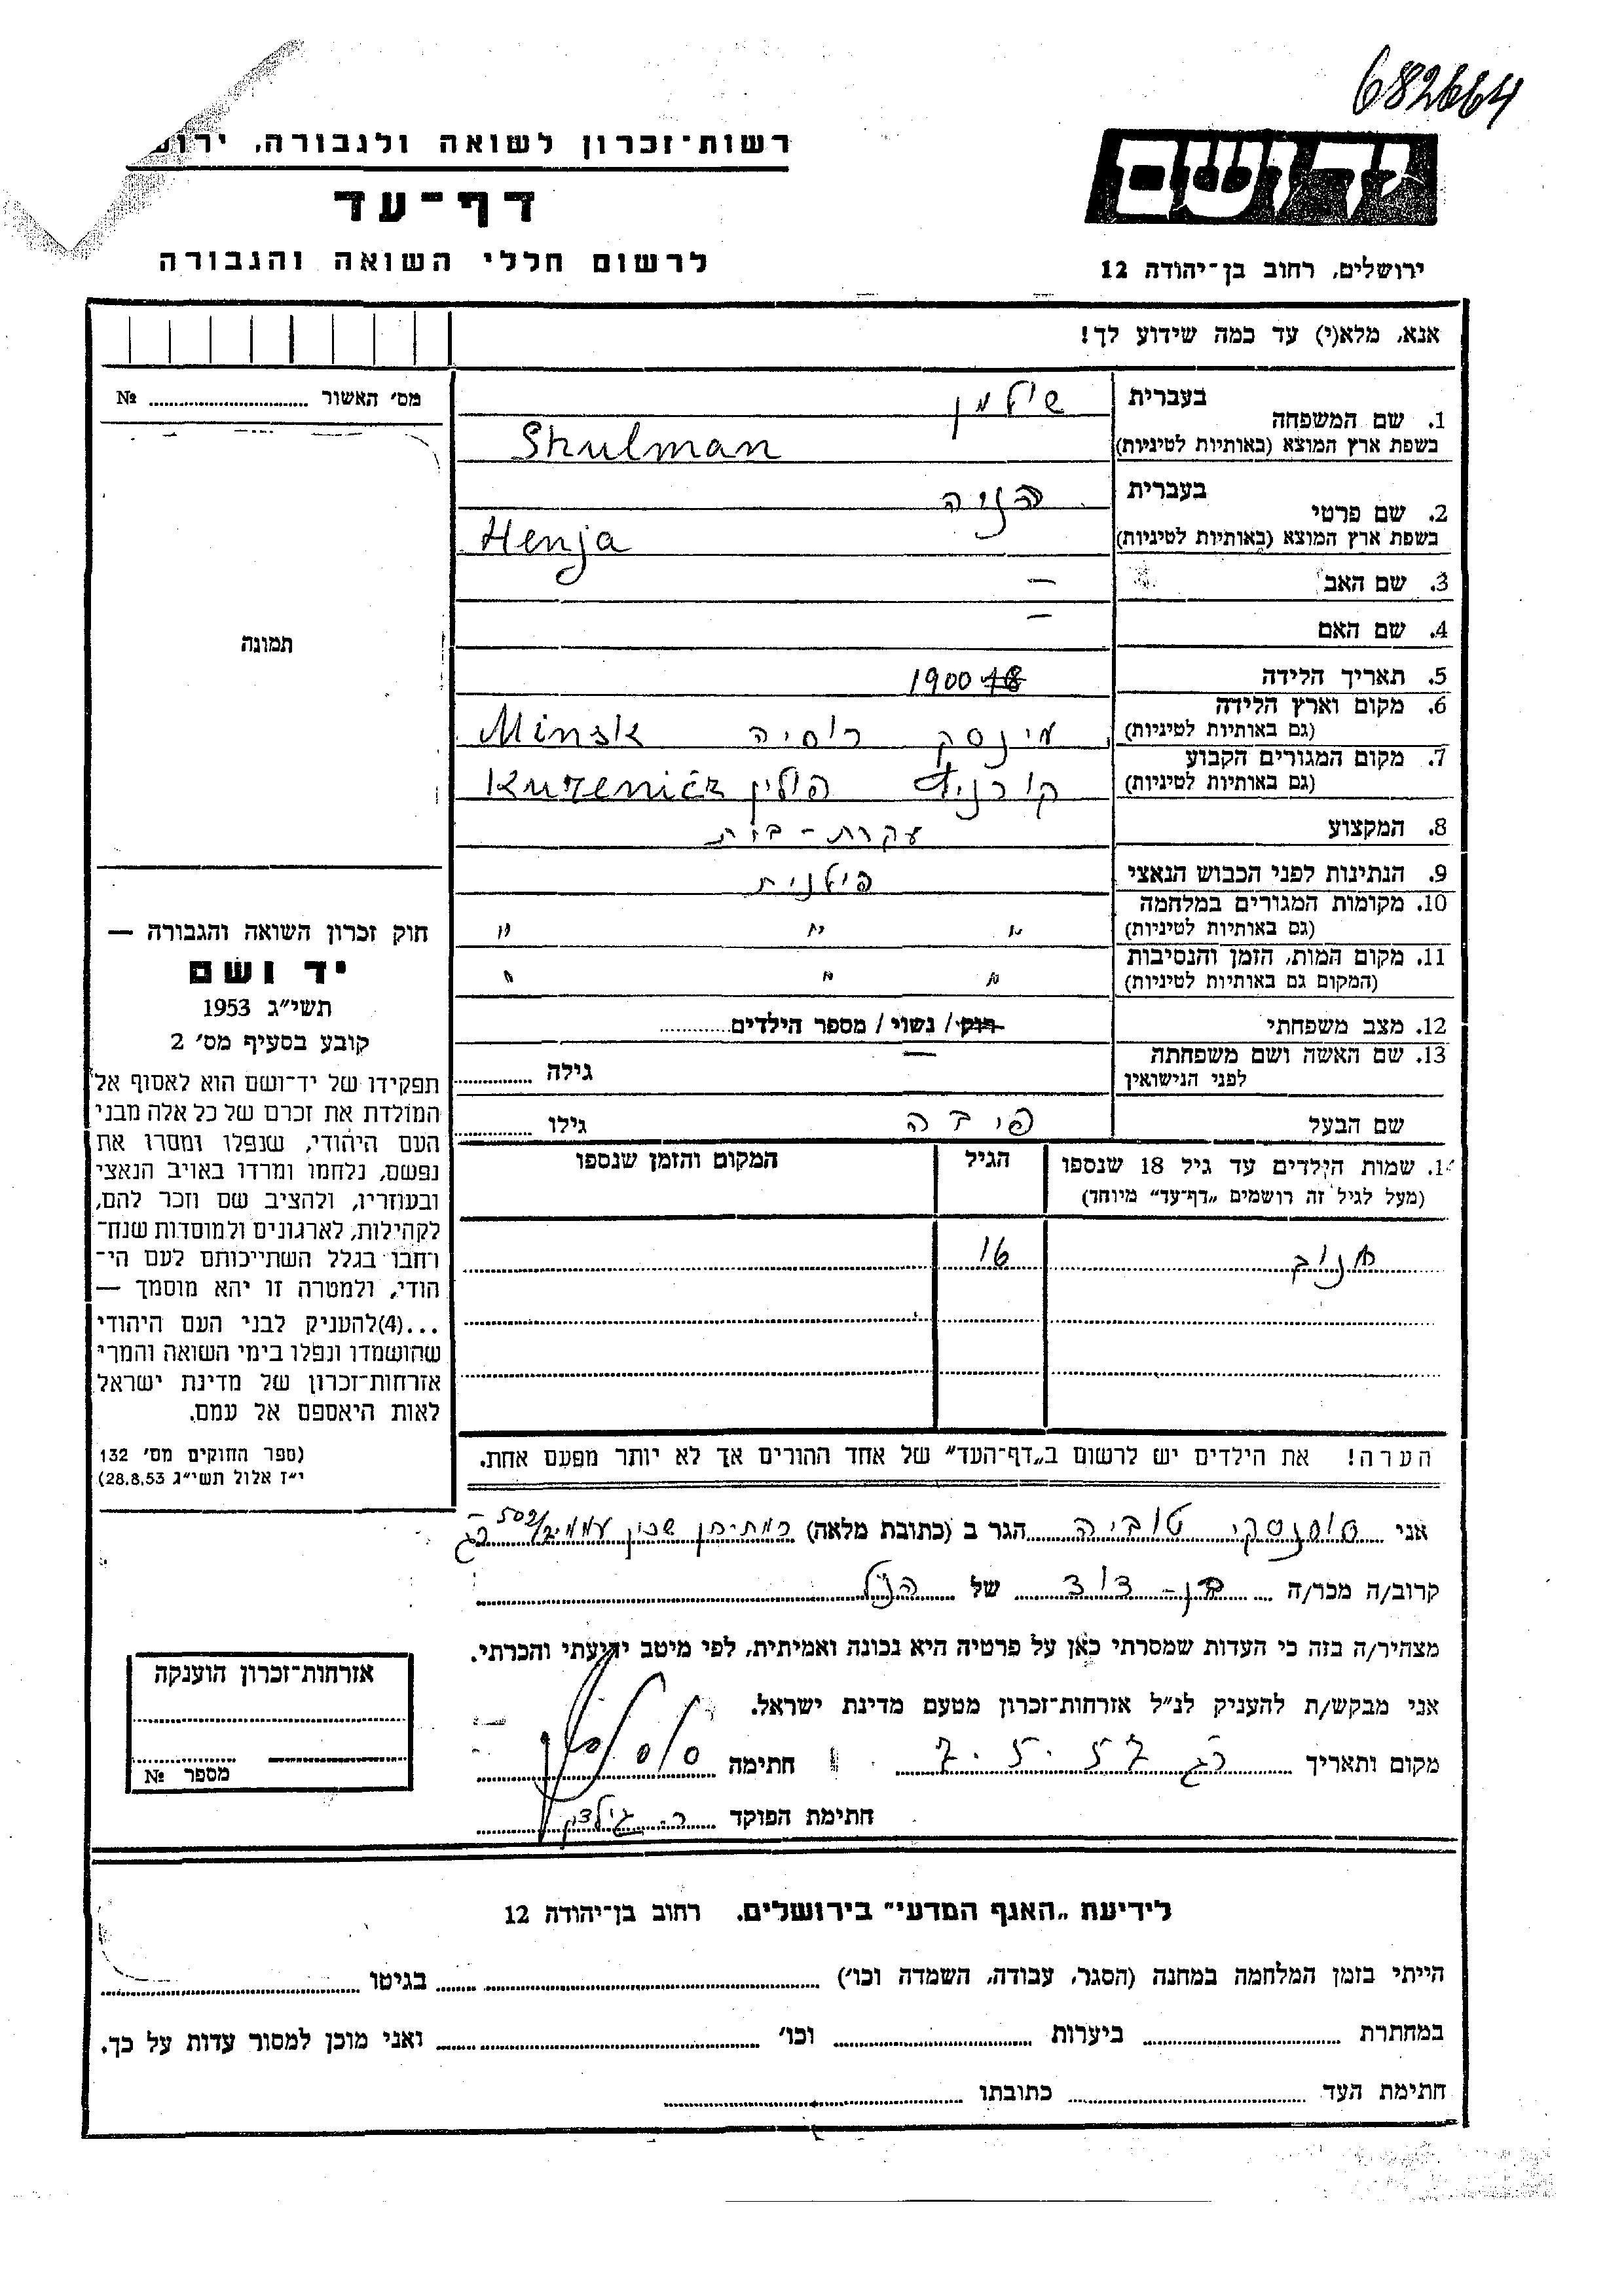 682664
רשות־זכרון לשואה ולגבורה,
יד ושם
דף־עד
לרשום חללי השואה והגבורה
ירושלים, רחוב בן־יהודה 12
אנא, מלא(י) עד כמה שידוע לך!
מס׳ האשור № ........
בעברית
1. שם המשפחה שולמן
בשפת ארץ המוצא (באותיות לטיניות) Shulman
בעברית
2. שם פרטי הניה
בשפת ארץ המוצא (באותיות לטיניות) Henja
3. שם האב —
4. שם האם —
תמונה
5. תאריך הלידה 1900
6. מקום וארץ הלידה
(גם באותיות לטיניות) מינסק רוסיה Minsk
7. מקום המגורים הקבוע
(גם באותיות לטיניות) פולין
8. המקצוע עקרת-בית
9. הנתינות לפני הכבוש הנאצי פולנית
10. מקומות המגורים במלחמה
(גם באותיות לטיניות) " " "
11. מקום המות, הזמן והנסיבות
(המקום גם באותיות לטיניות) " " "
12. מצב משפחתי רווק / נשוי / מספר הילדים........
13. שם האשה ושם משפחתה
לפני הנישואין — גילה ........
שם הבעל גילו ........
14. שמות הילדים עד גיל 18 שנספו
(מעל לגיל זה רושמים „דף־עד” מיוחד)
הגיל
המקום והזמן שנספו
16
חוק זכרון השואה והגבורה —
יד ושם
תשי״ג 1953
קובע בסעיף מס׳ 2
תפקידו של יד־ושם הוא לאסוף אל
המולדת את זכרם של כל אלה מבני
העם היהודי, שנפלו ומסרו את
נפשם, נלחמו ומרדו באויב הנאצי
ובעוזריו, ולהציב שם וזכר להם,
לקהילות, לארגונים ולמוסדות שנח־
רחבו בגלל השתייכותם לעם הי־
הודי, ולמטרה זו יהא מוסמך —
...(4)להעניק לבני העם היהודי
שהושמדו ונפלו בימי השואה והמרי
אזרחות־זכרון של מדינת ישראל
לאות היאספם אל עמם.
(ספר החוקים מס׳ 132
י״ז אלול תשי״ג 28.8.53)
הערה! את הילדים יש לרשום ב„דף־העד” של אחד ההורים אך לא יותר מפעם אחת.
אני טוביה הגר ב (כתובת מלאה) שכון עממי
קרוב/ה מכר/ה בן-דוד של הנ"ל
מצהיר/ה בזה כי העדות שמסרתי כאן על פרטיה היא נכונה ואמיתית, לפי מיטב ידיעתי והכרתי.
אני מבקש/ת להעניק לנ״ל אזרחות־זכרון מטעם מדינת ישראל.
מקום ותאריך רג 7.5.57 חתימה
חתימת הפוקד
אזרחות־זכרון הוענקה
מספר №
לידיעת „האגף המדעי” בירושלים, רחוב בן־יהודה 12
הייתי בזמן המלחמה במחנה (הסגר, עבודה, השמדה וכו׳) ........ בגיטו ........
במחתרת ........ ביערות ........ וכו׳ ........ ואני מוכן למסור עדות על כך.
חתימת העד ........ כתובתו ........